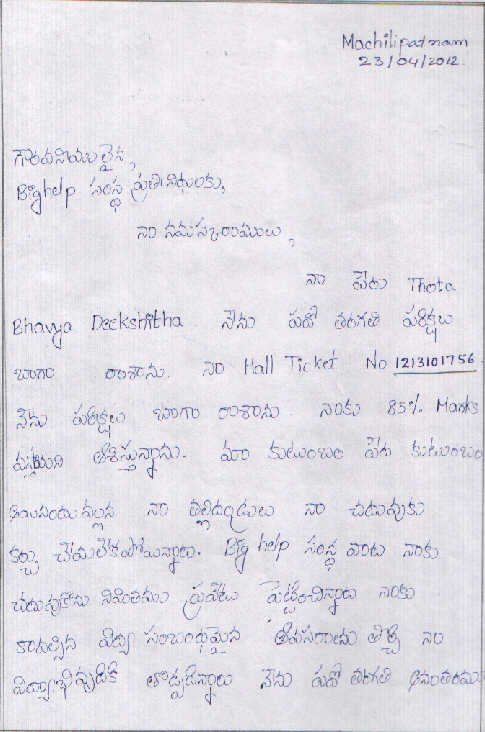 Machilipatnam
23/04/2012.
గౌరవనీయులైన,
Bighelp సంస్థ ప్రతినిధులకు,
నా నమస్కారములు,
నా పేరు Thota
Bhavya Deekshitha. నేను పదో తరగతి పరీక్షలు
బాగా రాశాను. నా Hall Ticket No 1213101756.
నేను పరీక్షలు బాగా రాశాను. నాకు 85% Marks
వస్తాయని ఆశిస్తున్నాను. మా కుటుంబం పేద కుటుంబం
అయినందు వల్లన నా తల్లిదండ్రులు నా చదువుకు
ఖర్చు చేయలేకపోయినారు. Big help సంస్థ వారు నాకు
చదువుకొను నిమిత్తము ప్రైవేటు పెట్టించినారు నాకు
కావల్సిన విద్యా సంబంధమైన అవసరాలను తీర్చి నా
విద్యాభివృద్ధికి తోడ్పడినారు నేను పదో తరగతి అనంతరము